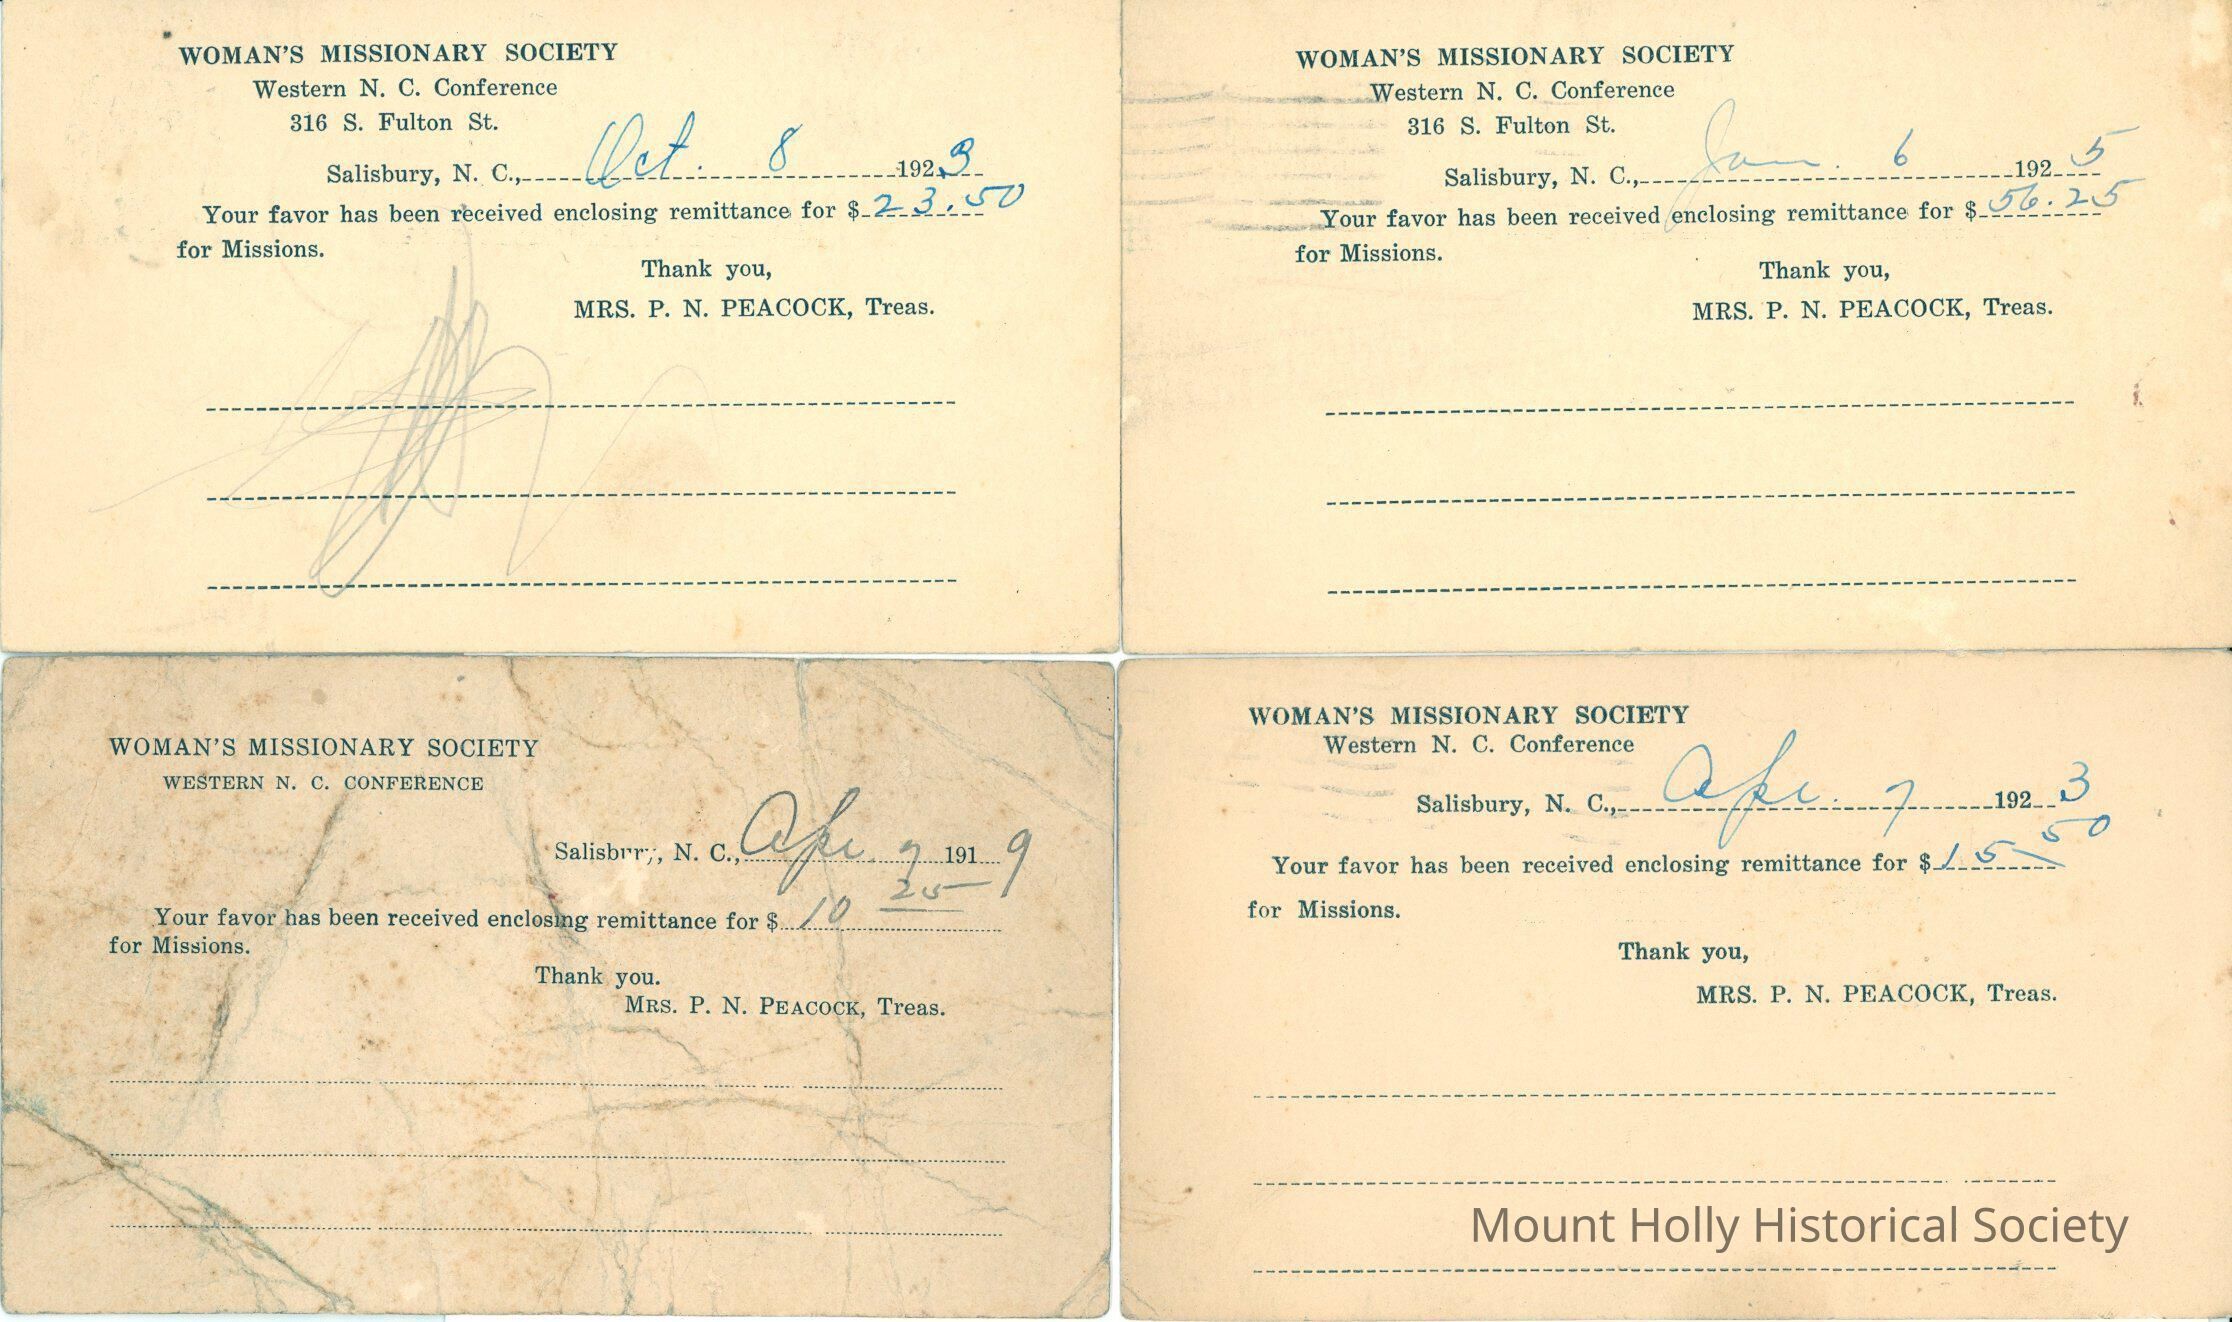 WOMAN'S MISSIONARY SOCIETY
Western N. C. Conference
316 S. Fulton St.
Salisbury, N. C., Oct. 8 1923
Your favor has been received enclosing remittance for $ 23.50
for Missions.
Thank you,
MRS. P. N. PEACOCK, Treas.
WOMAN'S MISSIONARY SOCIETY
Western N. C. Conference
316 S. Fulton St.
Salisbury, N. C., Jan. 6 1925
Your favor has been received enclosing remittance for $ 56.25
for Missions.
Thank you,
MRS. P. N. PEACOCK, Treas.
WOMAN'S MISSIONARY SOCIETY
WESTERN N. C. CONFERENCE
Salisbury, N. C., Apr 9 1919
Your favor has been received enclosing remittance for $ 10 25
for Missions.
Thank you.
MRS. P. N. PEACOCK, Treas.
WOMAN'S MISSIONARY SOCIETY
Western N. C. Conference
Salisbury, N. C., Apr. 7 1923
Your favor has been received enclosing remittance for $ 15 50
for Missions.
Thank you,
MRS. P. N. PEACOCK, Treas.
Mount Holly Historical Society